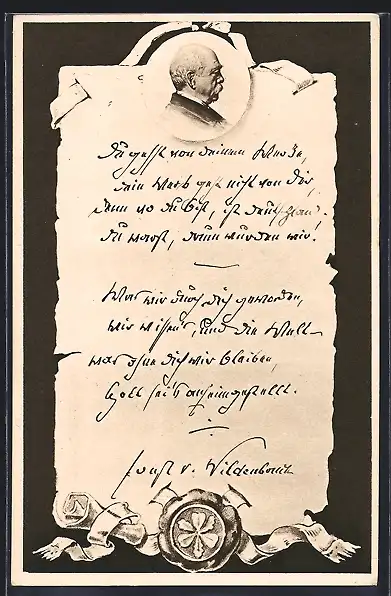 Du gehst von deinem Werke,
dein Werk geht nicht von Dir,
denn wo Du bist, ist Deutschland,
Du warst, drum wurden wir.
Was wir durch Dich geworden,
wir wissen's, und die Welt
was ohne Dich wir bleiben,
Gott sei's anheimgestellt.
Ernst v. Wildenbruch